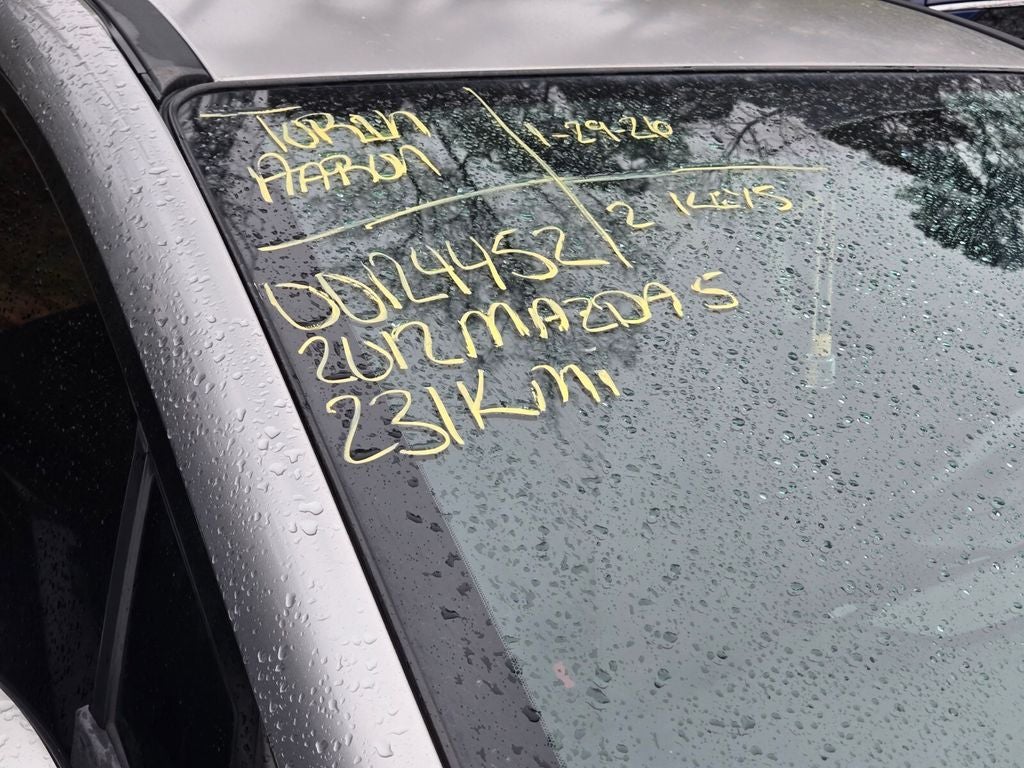 TORIN
AARON
1-29-26
2 KEYS
00124452
2012 MAZDA 5
231K mi